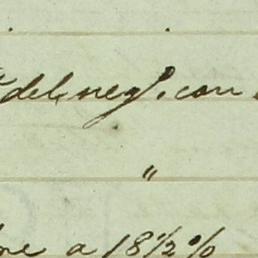 del neg.º con
"
a 18½%